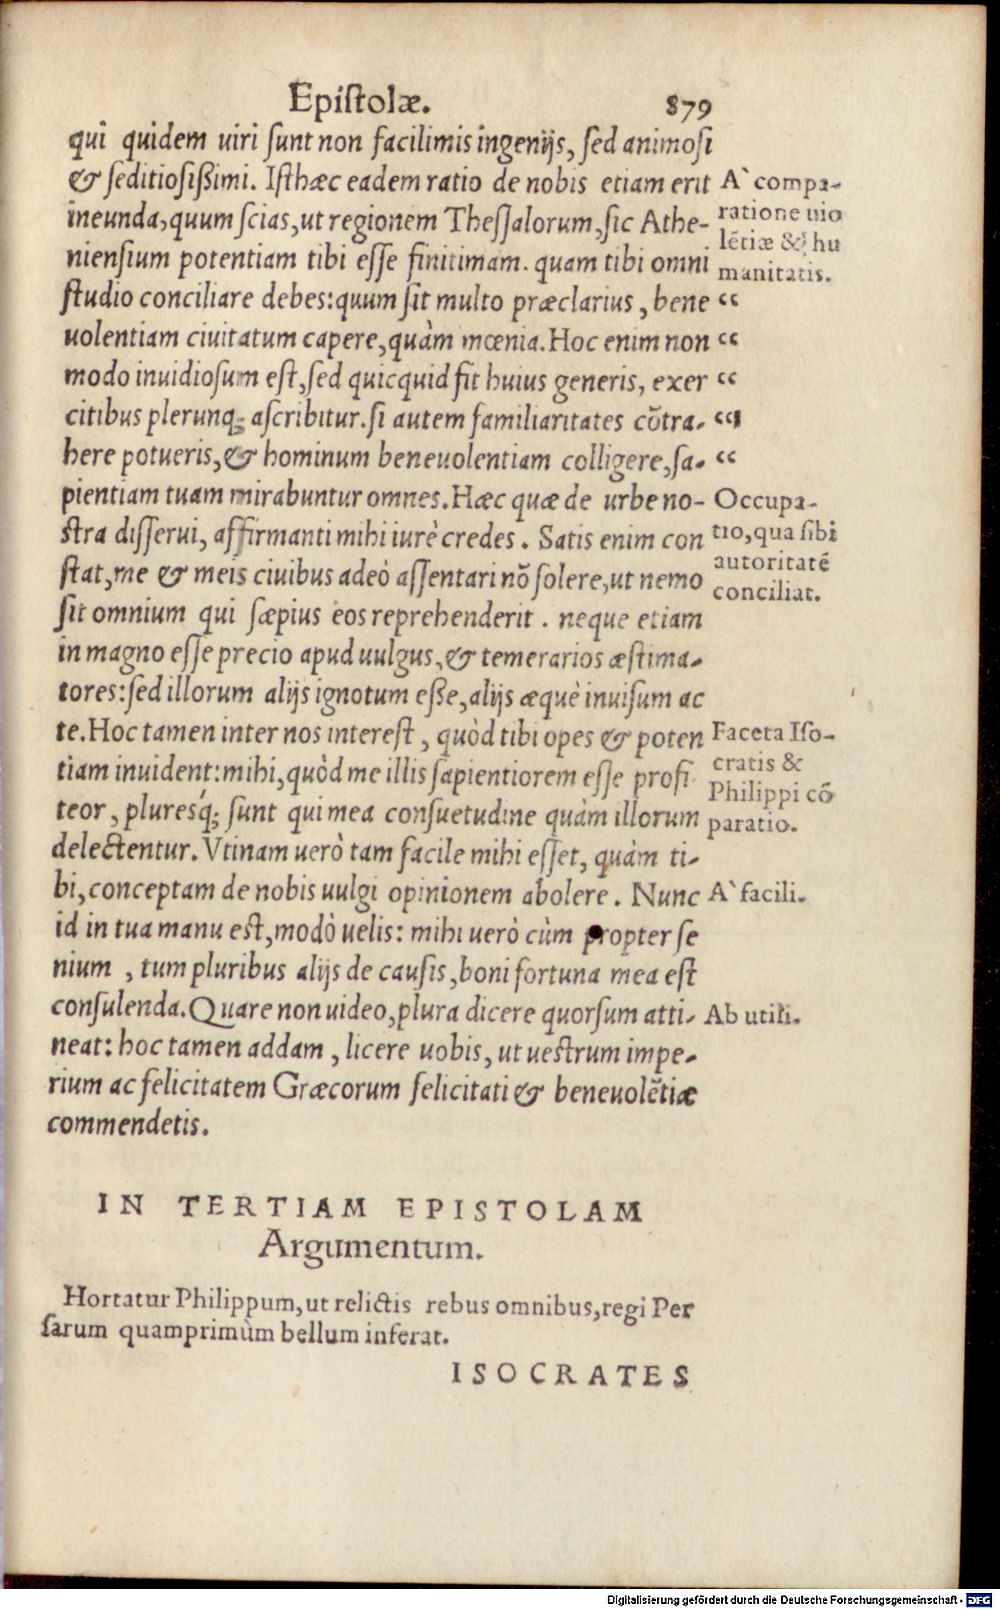 Epistolæ. 879
qui quidem uiri sunt non facilimis ingenijs, sed animosi
& seditiosißimi. Isthæc eadem ratio de nobis etiam erit
ineunda, quum scias, ut regionem Thessalorum, sic Athe-
niensium potentiam tibi esse finitimam. quam tibi omni
studio conciliare debes: quum sit multo præclarius, bene
uolentiam ciuitatum capere, quàm mœnia. Hoc enim non
modo inuidiosum est, sed quicquid fit huius generis, exer
citibus plerunq; ascribitur. si autem familiaritates cōtra-
here potueris, & hominum beneuolentiam colligere, sa-
pientiam tuam mirabuntur omnes. Hæc quæ de urbe no-
stra disserui, affirmanti mihi iurè credes. Satis enim con
stat, me & meis ciuibus adeò assentari nō solere, ut nemo
sit omnium qui sæpius eos reprehenderit. neque etiam
in magno esse precio apud uulgus, & temerarios æstima-
tores: sed illorum alijs ignotum eße, alijs æquè inuisum ac
te. Hoc tamen inter nos interest, quòd tibi opes & poten
tiam inuident: mihi, quòd me illis sapientiorem esse profi
teor, pluresq́; sunt qui mea consuetudine quàm illorum
delectentur. Vtinam uerò tam facile mihi esset, quàm ti-
bi, conceptam de nobis uulgi opinionem abolere. Nunc
id in tua manu est, modò uelis: mihi uerò cùm propter se
nium, tum pluribus alijs de causis, boni fortuna mea est
consulenda. Quare non uideo, plura dicere quorsum atti-
neat: hoc tamen addam, licere uobis, ut uestrum impe-
rium ac felicitatem Græcorum felicitati & beneuolētiæ
commendetis.
A` compa-
ratione uio
lētiæ & hu
manitatis.
“
“
“
“
“
Occupa-
tio, qua sibi
autoritatē
conciliat.
Faceta Iso-
cratis &
Philippi cō
paratio.
A` facili.
Ab utili.
IN TERTIAM EPISTOLAM
Argumentum.
Hortatur Philippum, ut relictis rebus omnibus, regi Per
sarum quamprimùm bellum inferat.
ISOCRATES
Digitalisierung gefördert durch die Deutsche Forschungsgemeinschaft - DFG